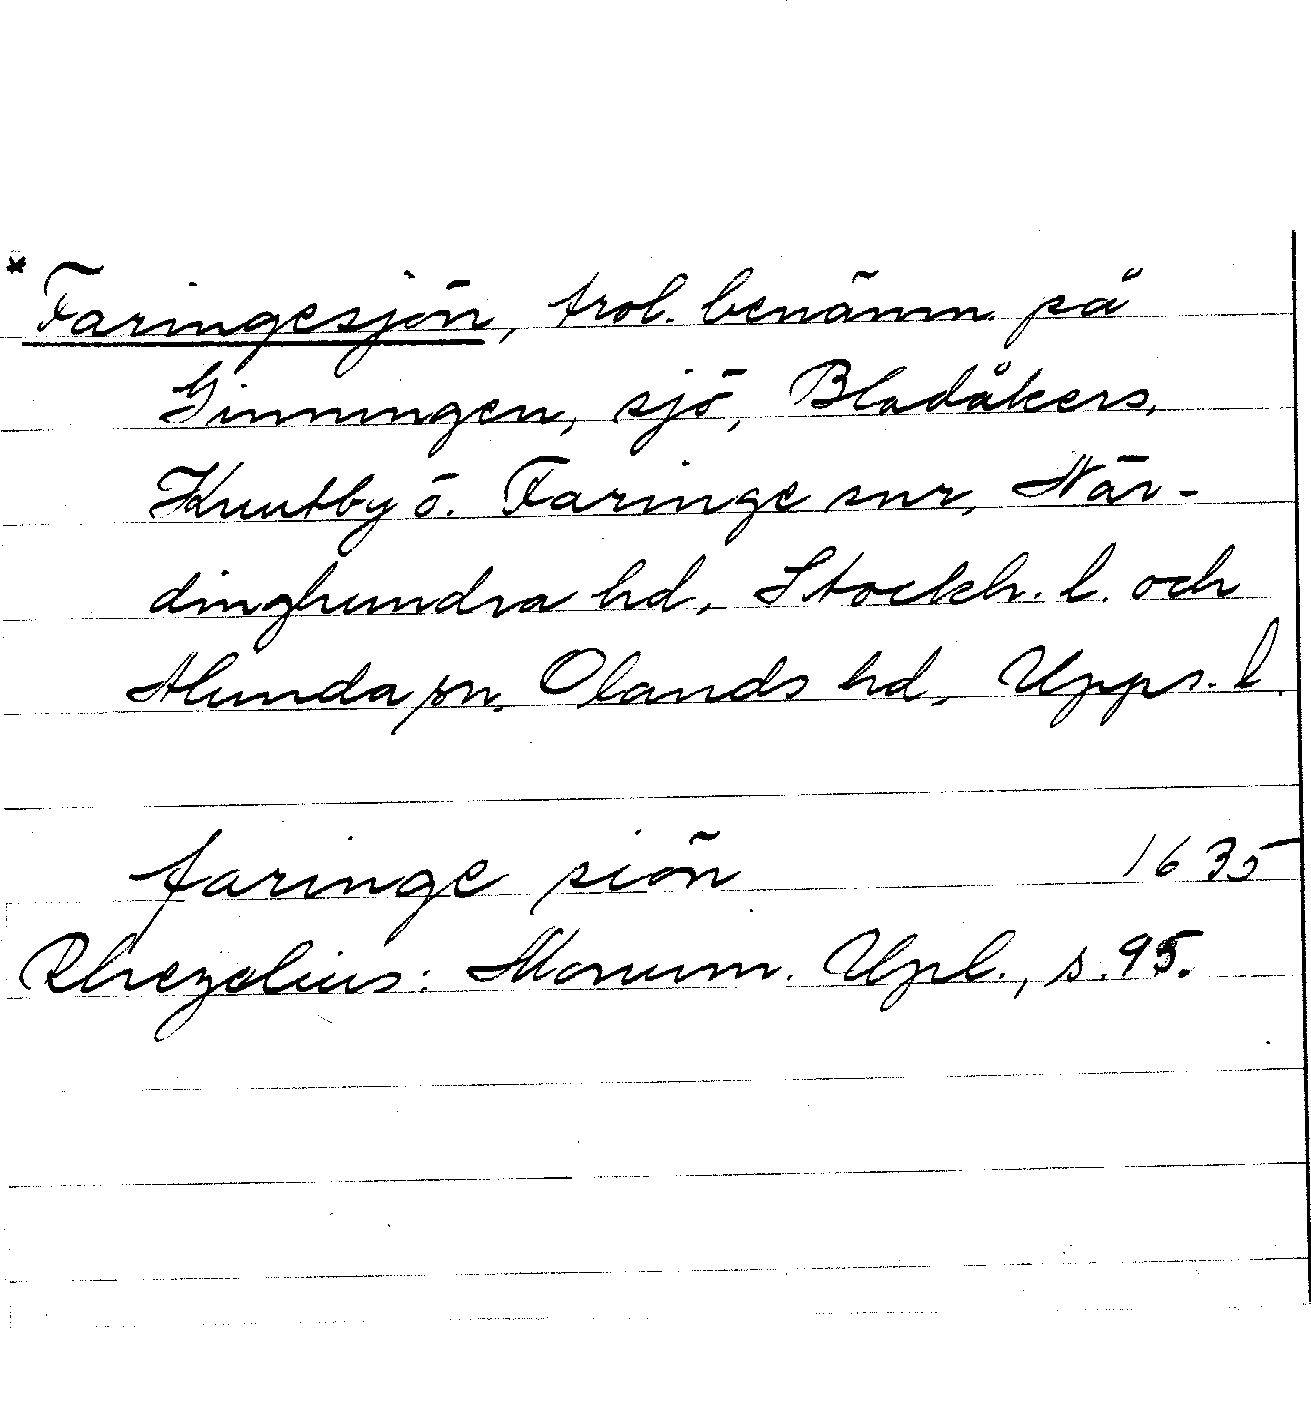 * Faringesjön, trol. benämn. på
Ginningen, sjö, Bladåkers,
Knutby o. Faringe snr, När-
dinghundra hd, Stockh. l. och
Alunda sn. Olands hd, Upps. l.
faringe siön 1635
Rhezelius: Monum. Upl., s. 95.